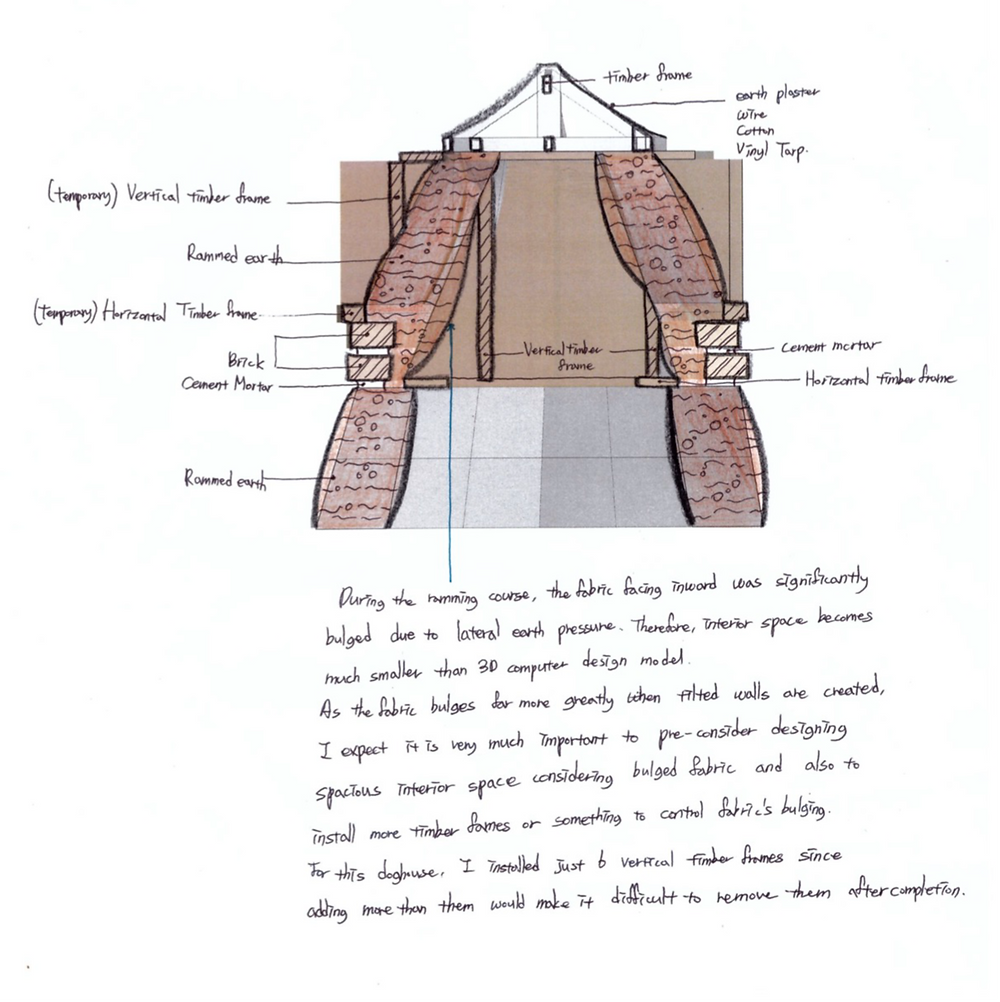 timber frame
earth plaster
wire
Cotton
Vinyl Tarp.
(temporary) Vertical timber frame
Rammed earth
(temporary) Horizontal Timber frame
Brick
Cement Mortar
Vertical timber
frame
Cement mortar
Horizontal timber frame
Rammed earth
During the ramming course, the fabric facing inward was significantly
bulged due to lateral earth pressure. Therefore, interior space becomes
much smaller than 3D computer design model.
As the fabric bulges far more greatly when tilted walls are created,
I expect it is very much important to pre-consider designing
spacious interior space considering bulged fabric and also to
install more timber fames or something to control fabric's bulging.
For this doghouse, I installed just 6 vertical timber frames since
adding more than them would make it difficult to remove them after completion.